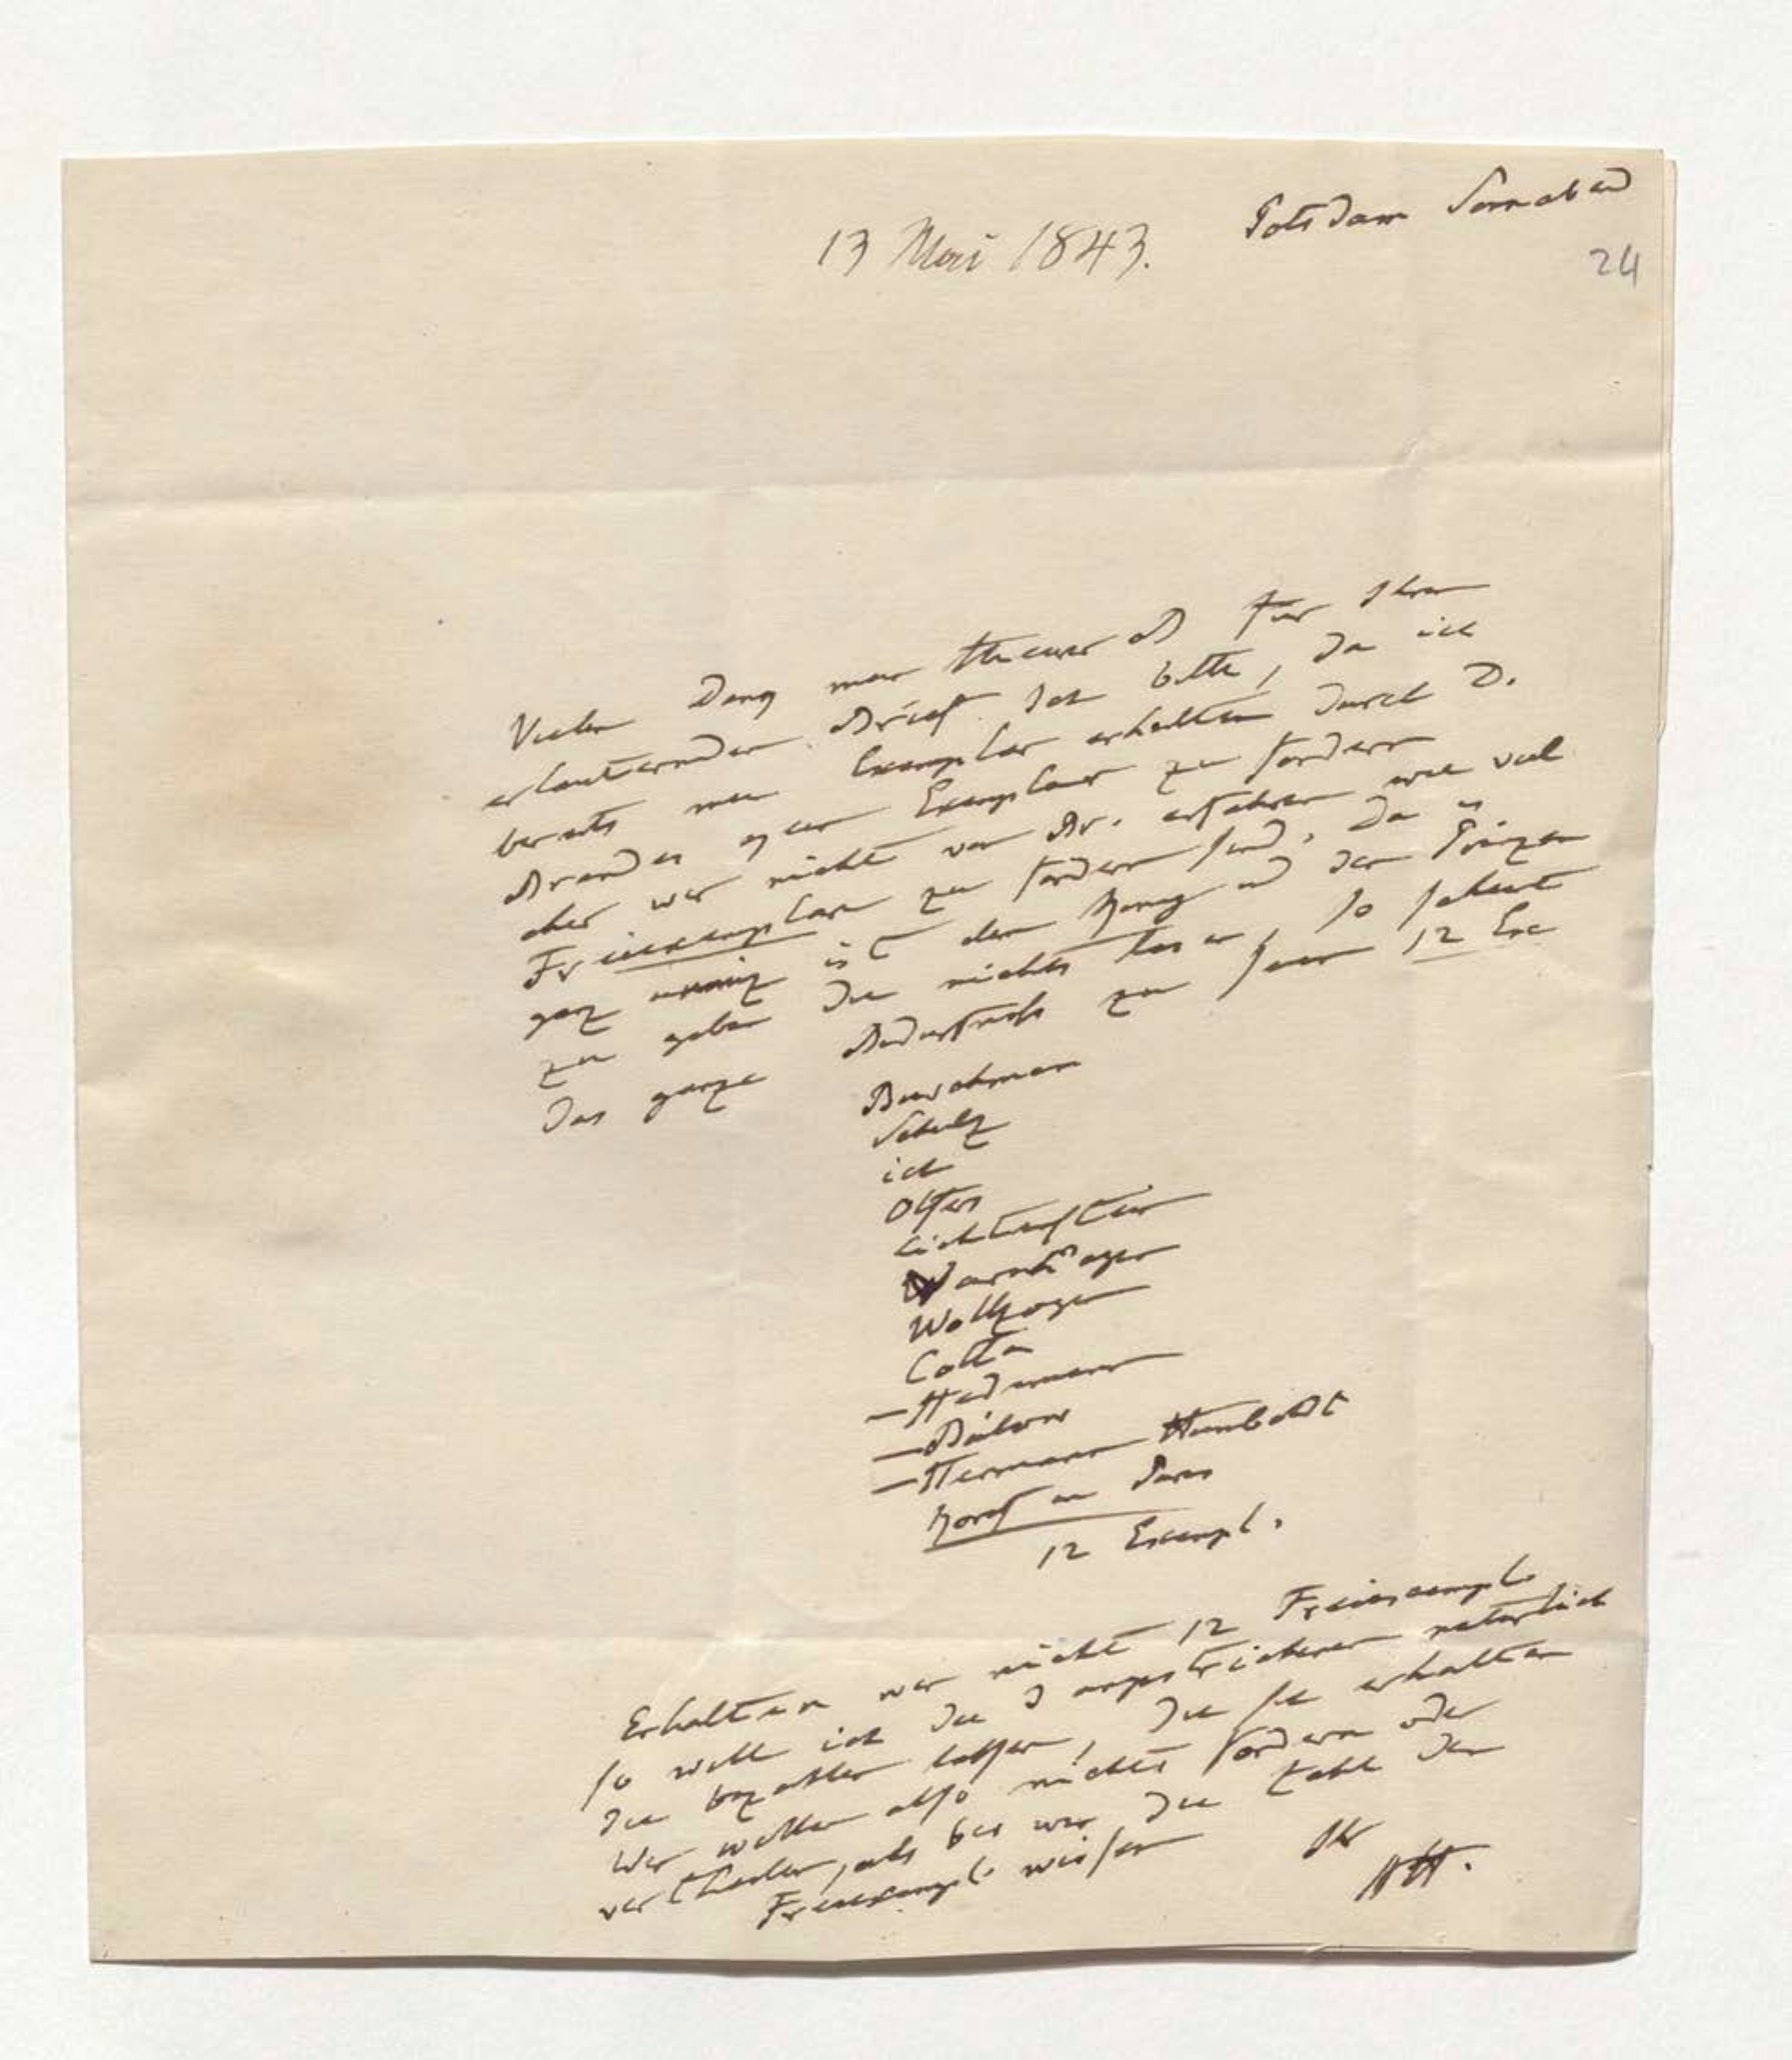 Potsdam Sonnabend
13 Mai 1843.
24
Vielen Dank mein theurer B für Ihren
erläuternden Brief. Ich bitte, da ich
bereits mein Exemplar erhalten durch D.
Brandes Exemplare zu fordern
aber wir nicht von Br. erfahren wie viel
Freiexemplare zu fordern sind. Da es
ganz unnüz ist dem König und den Prinzen
zu geben die nichts lesen, so scheint
das ganze Bedürfniss zu sein 12 Ex
Buschmann
Schulz
ich
Olfers
Lichtenstein
Varnhagen
Wollzogen
Cotta
– Hedemann
– Bülow
– Hermann Humboldt
Koreff in Paris
12 Exempl.
Erhalten wir nicht 12 Freiexempl
so will ich die 3 angestrichenen natürlich
die bezahlen lassen, die sie erhalten
Wir wollen also nichts fordern oder
vertheilen, als bis wir die Zahl der
Freiexempl. wissen Ihr
AHt.